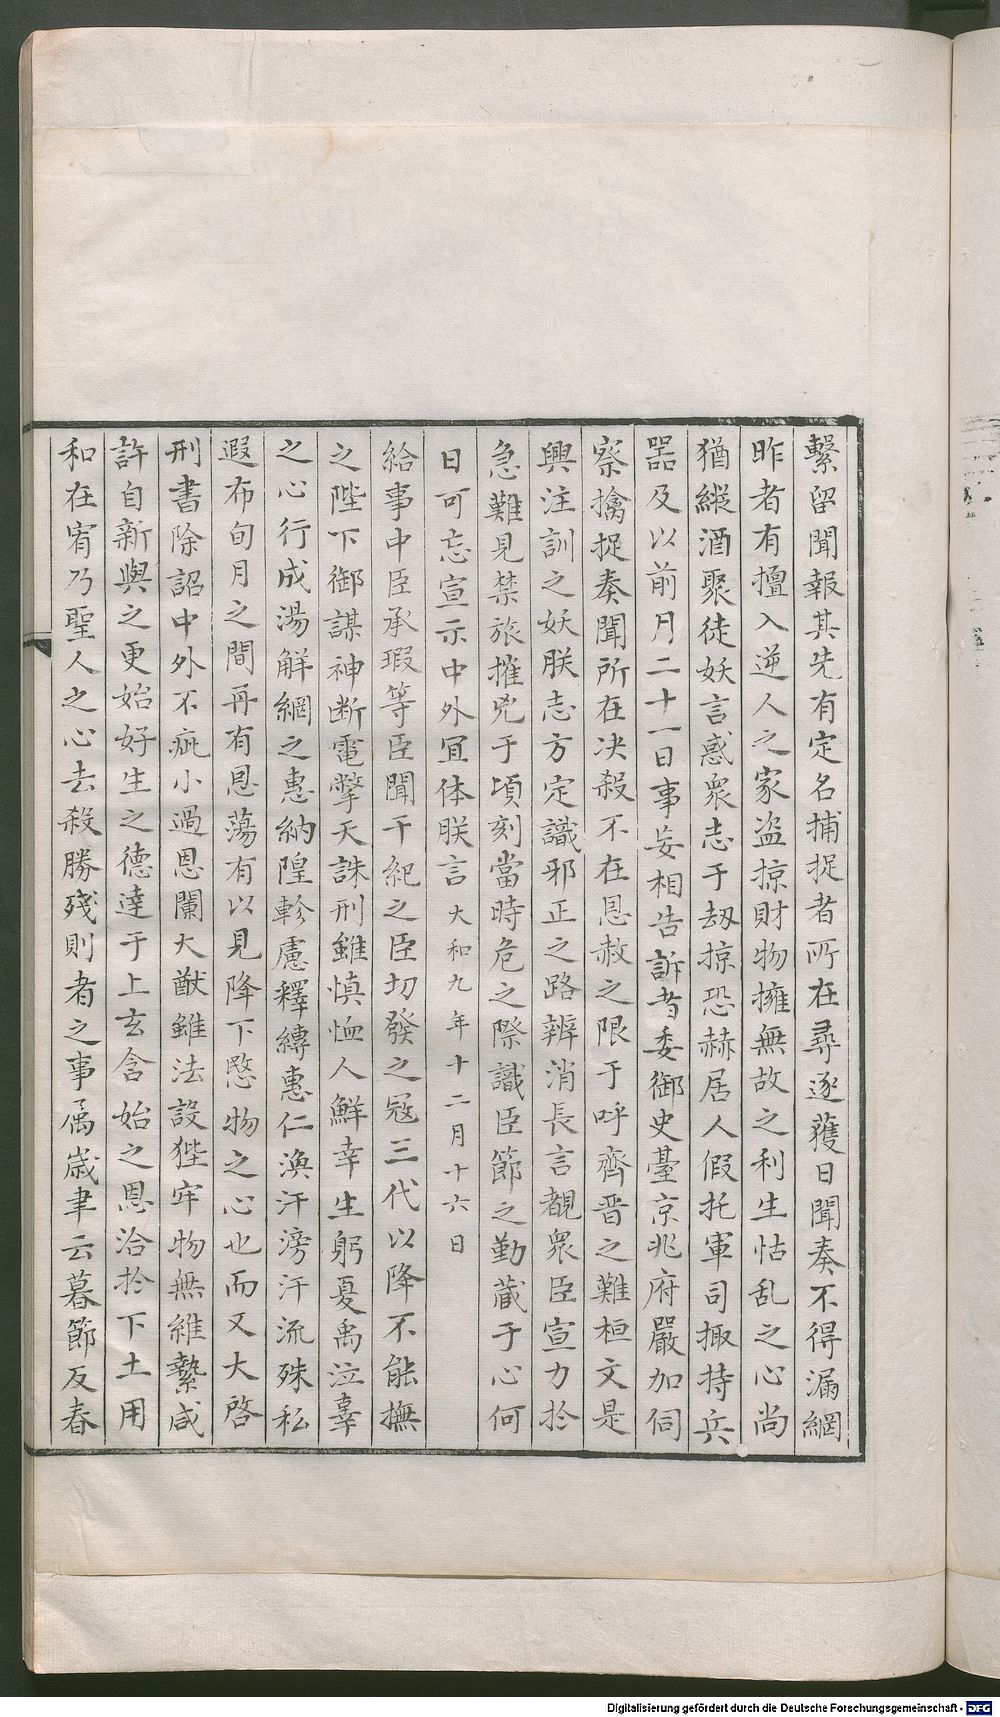 繫留聞報其先有定名捕捉者所在尋逐獲日聞奏不得漏網
昨者有擅入逆人之家盗掠財物擁無故之利生怙乱之心尚
猶縱酒聚徒妖言惑衆志于刼掠恐赫居人假托軍司掫持兵
噐及以前月二十一日事妄相告訴者委御史臺京兆府嚴加伺
察擒捉奏聞所在决殺不在恩赦之限于呼齊晋之難桓文是
興注訓之妖朕志方定識邪正之路辨消長言覩衆臣宣力扵
急難見禁旅摧兇于頃刻當時危之際識臣節之勤蔵于心何
日可忘宣示中外宜体朕言大和九年十二月十六日
給事中臣承瑕等臣聞干紀之臣切發之冦三代以降不能撫
之陛下御謀神断電擊天誅刑雖慎恤人鮮幸生躬夏禹泣辜
之心行成湯解網之惠納隍軫慮釋縛惠仁渙汗滂汗流殊私
遐布旬月之間再有恩蕩有以見降下愍物之心也而又大啓
刑書除詔中外不疵小過恩闡大猷雖法設狴牢物無維縶咸
許自新與之更始好生之德達于上玄含始之恩洽扵下土用
和在宥乃聖人之心去殺勝殘則者之事属歳聿云暮節及春
Digitalisierung gefördert durch die Deutsche Forschungsgemeinschaft - DFG